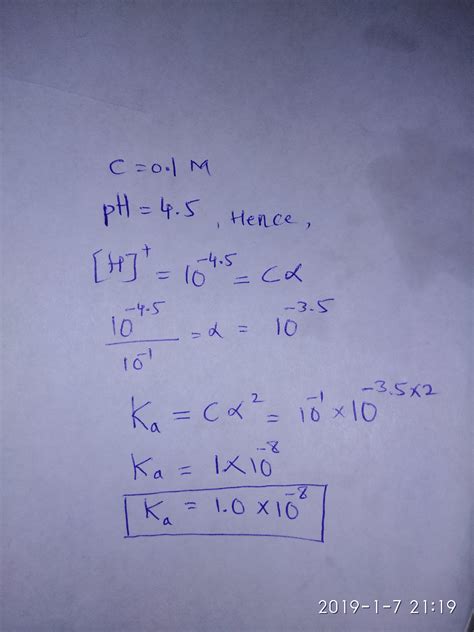 C = 0.1 M
pH = 4.5 , Hence ,
[H]⁺ = 10^-4.5 = Cα
10^-4.5 / 10^-1 = α = 10^-3.5
Ka = Cα² = 10^-1 × 10^-3.5×2
Ka = 1×10^-8
Ka = 1.0 ×10^-8
2019-1-7 21:19